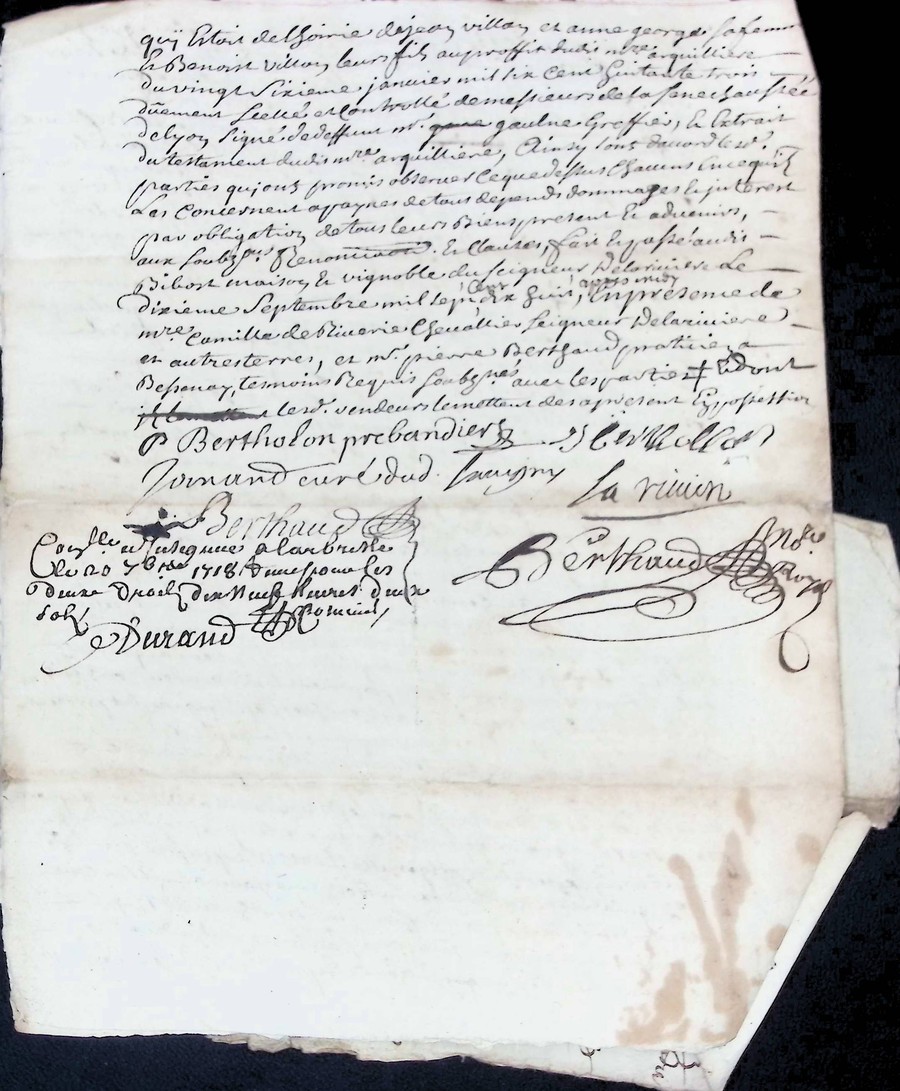 quÿ Estoit de lhoirie de jean villon et anne george sa femme
Et Benoist villon leur fils au proffit dudit mre arquilliere
du vingt sixieme janvier mil six cent sintante trois
düement scellé et controllé de messieurs de la senechaussée
de lyon signé de deffunt mr. gaulne Greffier, Et Extrait
du testament dudit mre arquilliere, Ainsy sont daccord lesd.
parties qui ont promis observer ce que dessus Chacuns En ce quil
Les Concernent a paÿnes de tous depends dommages Et jnterest
par obligation de tous leurs Biens present Et advenirs,
aux soubz Renonciaon. Et Clauses, fait Et passé audit
Bibost maison Et vignoble du seigneur Delariviere Le
dixieme Septembre mil sept Cent dix huit, apres midy En presence de
mre Camille de Riverie Chevallier seigneur Delariviere
et autres terres, et mr. pierre Berthaud praticien a
Bessenay, tesmoins Requis soubznés avec les parties ‡ Et dont
lesd. vendeurs se mettent des a present En possession
P Bertholon prebandier
jomand curé dud. savigny
la rivier
Berthaud
Berthaud no.re Royal
Con.lle et insegnué a larbresle
le 20 7bre 1718
douze droicts dix neuf livres deux
sols
Durand